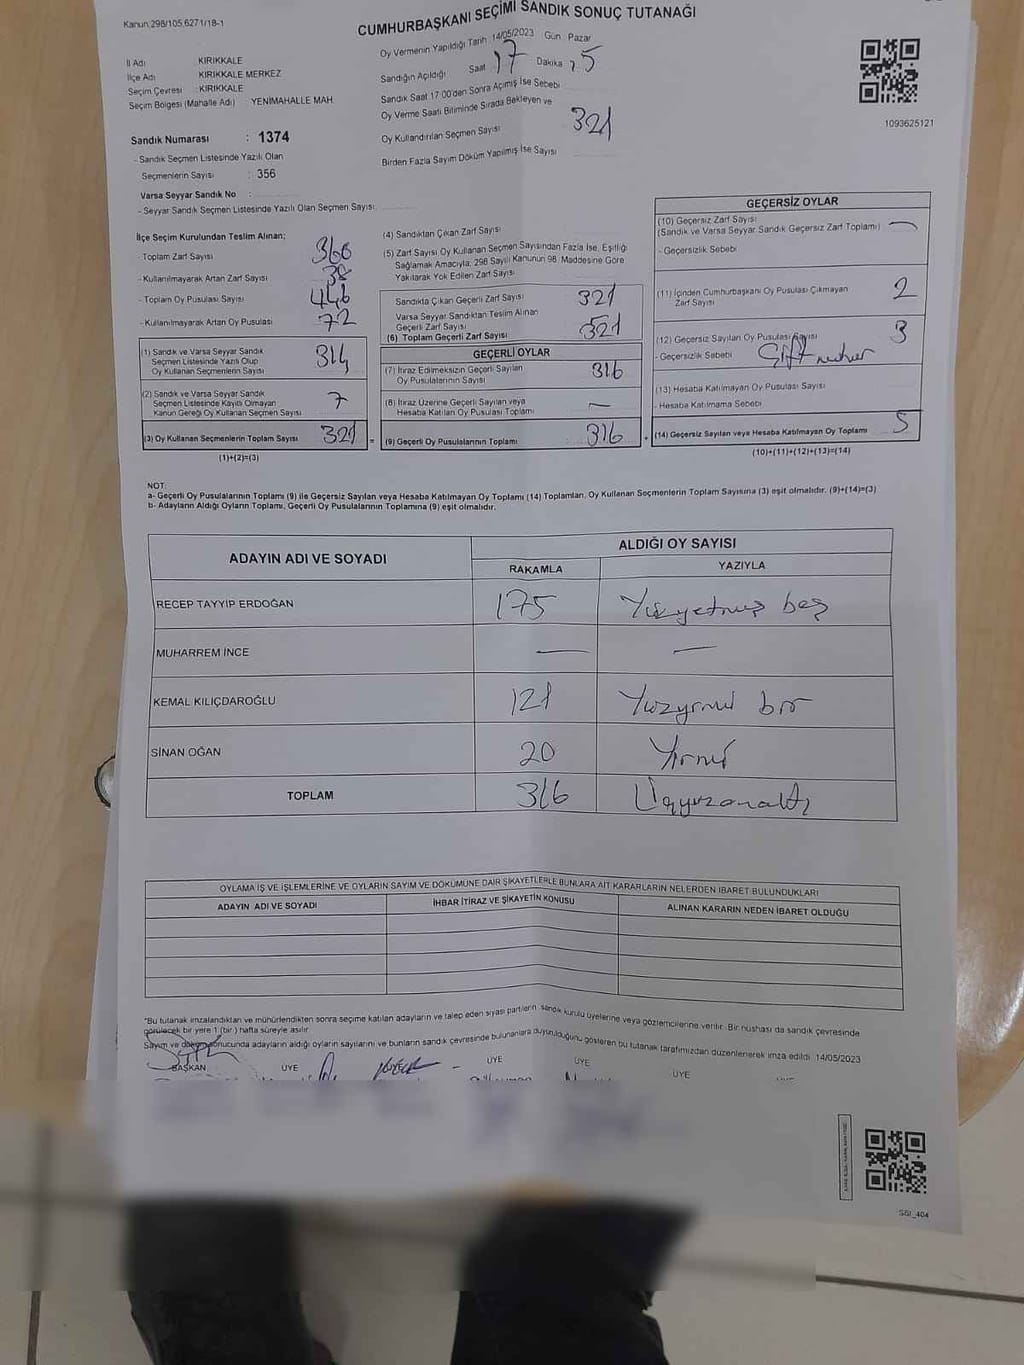 Kanun 298/105,6271/18-1
CUMHURBAŞKANI SEÇİMİ SANDIK SONUÇ TUTANAĞI
İl Adı KIRIKKALE
İlçe Adı KIRIKKALE MERKEZ
Seçim Çevresi : KIRIKKALE
Seçim Bölgesi (Mahalle Adı) YENİMAHALLE MAH
Oy Vermenin Yapıldığı Tarih 14/05/2023 Gün Pazar
Sandığın Açıldığı Saat 17 Dakika 25
Sandık Saat 17:00'den Sonra Açımış İse Sebebi
Oy Verme Saati Bitiminde Sırada Bekleyen ve
Oy Kullandırılan Seçmen Sayısı 321
Birden Fazla Sayım Döküm Yapılmış İse Sayısı
1093625121
Sandık Numarası : 1374
- Sandık Seçmen Listesinde Yazılı Olan
Seçmenlerin Sayısı : 356
Varsa Seyyar Sandık No :
- Seyyar Sandık Seçmen Listesinde Yazılı Olan Seçmen Sayısı:
İlçe Seçim Kurulundan Teslim Alınan;
- Toplam Zarf Sayısı 360
- Kullanılmayarak Artan Zarf Sayısı 38
- Toplam Oy Pusulası Sayısı 446
- Kullanılmayarak Artan Oy Pusulası 72
(1) Sandık ve Varsa Seyyar Sandık
Seçmen Listesinde Yazılı Olup
Oy Kullanan Seçmenlerin Sayısı 314
(2) Sandık ve Varsa Seyyar Sandık
Seçmen Listesinde Kayıtlı Olmayan
Kanun Gereği Oy Kullanan Seçmen Sayısı 7
(3) Oy Kullanan Seçmenlerin Toplam Sayısı 321 =
(1)+(2)=(3)
(4) Sandıktan Çıkan Zarf Sayısı
(5) Zarf Sayısı Oy Kullanan Seçmen Sayısından Fazla İse, Eşitliği
Sağlamak Amacıyla, 298 Sayılı Kanunun 98. Maddesine Göre
Yakılarak Yok Edilen Zarf Sayısı
Sandıkta Çıkan Geçerli Zarf Sayısı 321
Varsa Seyyar Sandıktan Teslim Alınan
Geçerli Zarf Sayısı
(6) Toplam Geçerli Zarf Sayısı: 321
GEÇERLİ OYLAR
(7) İtiraz Edilmeksizin Geçerli Sayılan
Oy Pusulalarının Sayısı 316
(8) İtiraz Üzerine Geçerli Sayılan veya
Hesaba Katılan Oy Pusulası Toplamı —
(9) Geçerli Oy Pusulalarının Toplamı : 316 +
GEÇERSİZ OYLAR
(10) Geçersiz Zarf Sayısı
(Sandık ve Varsa Seyyar Sandık Geçersiz Zarf Toplamı) —
- Geçersizlik Sebebi
(11) İçinden Cumhurbaşkanı Oy Pusulası Çıkmayan
Zarf Sayısı 2
(12) Geçersiz Sayılan Oy Pusulası Sayısı 3
- Geçersizlik Sebebi Çift mühür
(13) Hesaba Katılmayan Oy Pusulası Sayısı
- Hesaba Katılmama Sebebi
(14) Geçersiz Sayılan veya Hesaba Katılmayan Oy Toplamı 5
(10)+(11)+(12)+(13)=(14)
NOT:
a- Geçerli Oy Pusulalarının Toplamı (9) ile Geçersiz Sayılan veya Hesaba Katılmayan Oy Toplamı (14) Toplamları, Oy Kullanan Seçmenlerin Toplam Sayısına (3) eşit olmalıdır. (9)+(14)=(3)
b- Adayların Aldığı Oyların Toplamı, Geçerli Oy Pusulalarının Toplamına (9) eşit olmalıdır.
ADAYIN ADI VE SOYADI ALDIĞI OY SAYISI
RAKAMLA YAZIYLA
RECEP TAYYİP ERDOĞAN 175 Yüzyetmiş beş
MUHARREM İNCE — —
KEMAL KILIÇDAROĞLU 121 Yüzyirmi bir
SİNAN OĞAN 20 Yirmi
TOPLAM 316 Üçyüzonaltı
OYLAMA İŞ VE İŞLEMLERİNE VE OYLARIN SAYIM VE DÖKÜMÜNE DAİR ŞİKAYETLERLE BUNLARA AİT KARARLARIN NELERDEN İBARET BULUNDUKLARI
ADAYIN ADI VE SOYADI İHBAR İTİRAZ VE ŞİKAYETİN KONUSU ALINAN KARARIN NEDEN İBARET OLDUĞU
*Bu tutanak imzalandıktan ve mühürlendikten sonra seçime katılan adayların ve talep eden siyasi partilerin sandık kurulu üyelerine veya gözlemcilerine verilir. Bir nüshası da sandık çevresinde
görülecek bir yere 1 (bir) hafta süreyle asılır
Sayım ve döküm sonucunda adayların aldığı oyların sayılarını ve bunların sandık çevresinde bulunanlara duyurulduğunu gösteren bu tutanak tarafımızdan düzenlenerek imza edildi. 14/05/2023
BAŞKAN ÜYE ÜYE ÜYE ÜYE
SSİ_404